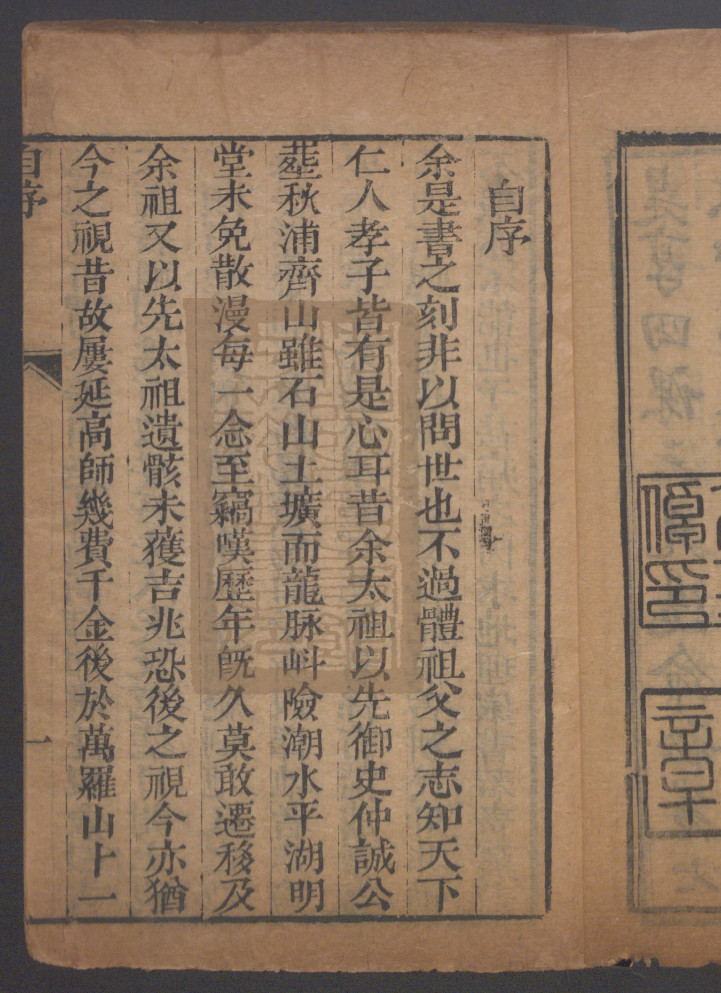 自序
余是書之刻非以問世也不過體祖父之志知天下
仁人孝子皆有是心耳昔余太祖以先御史仲誠公
塟秋浦齊山雖石山土壙而龍脉㞳險潮水平湖明
堂未免散漫每一念至竊嘆歷年旣久莫敢遷移及
余祖又以先太祖遺骸未獲吉兆恐後之視今亦猶
今之視昔故屢延高師幾費千金後於萬羅山卜一
自序
一